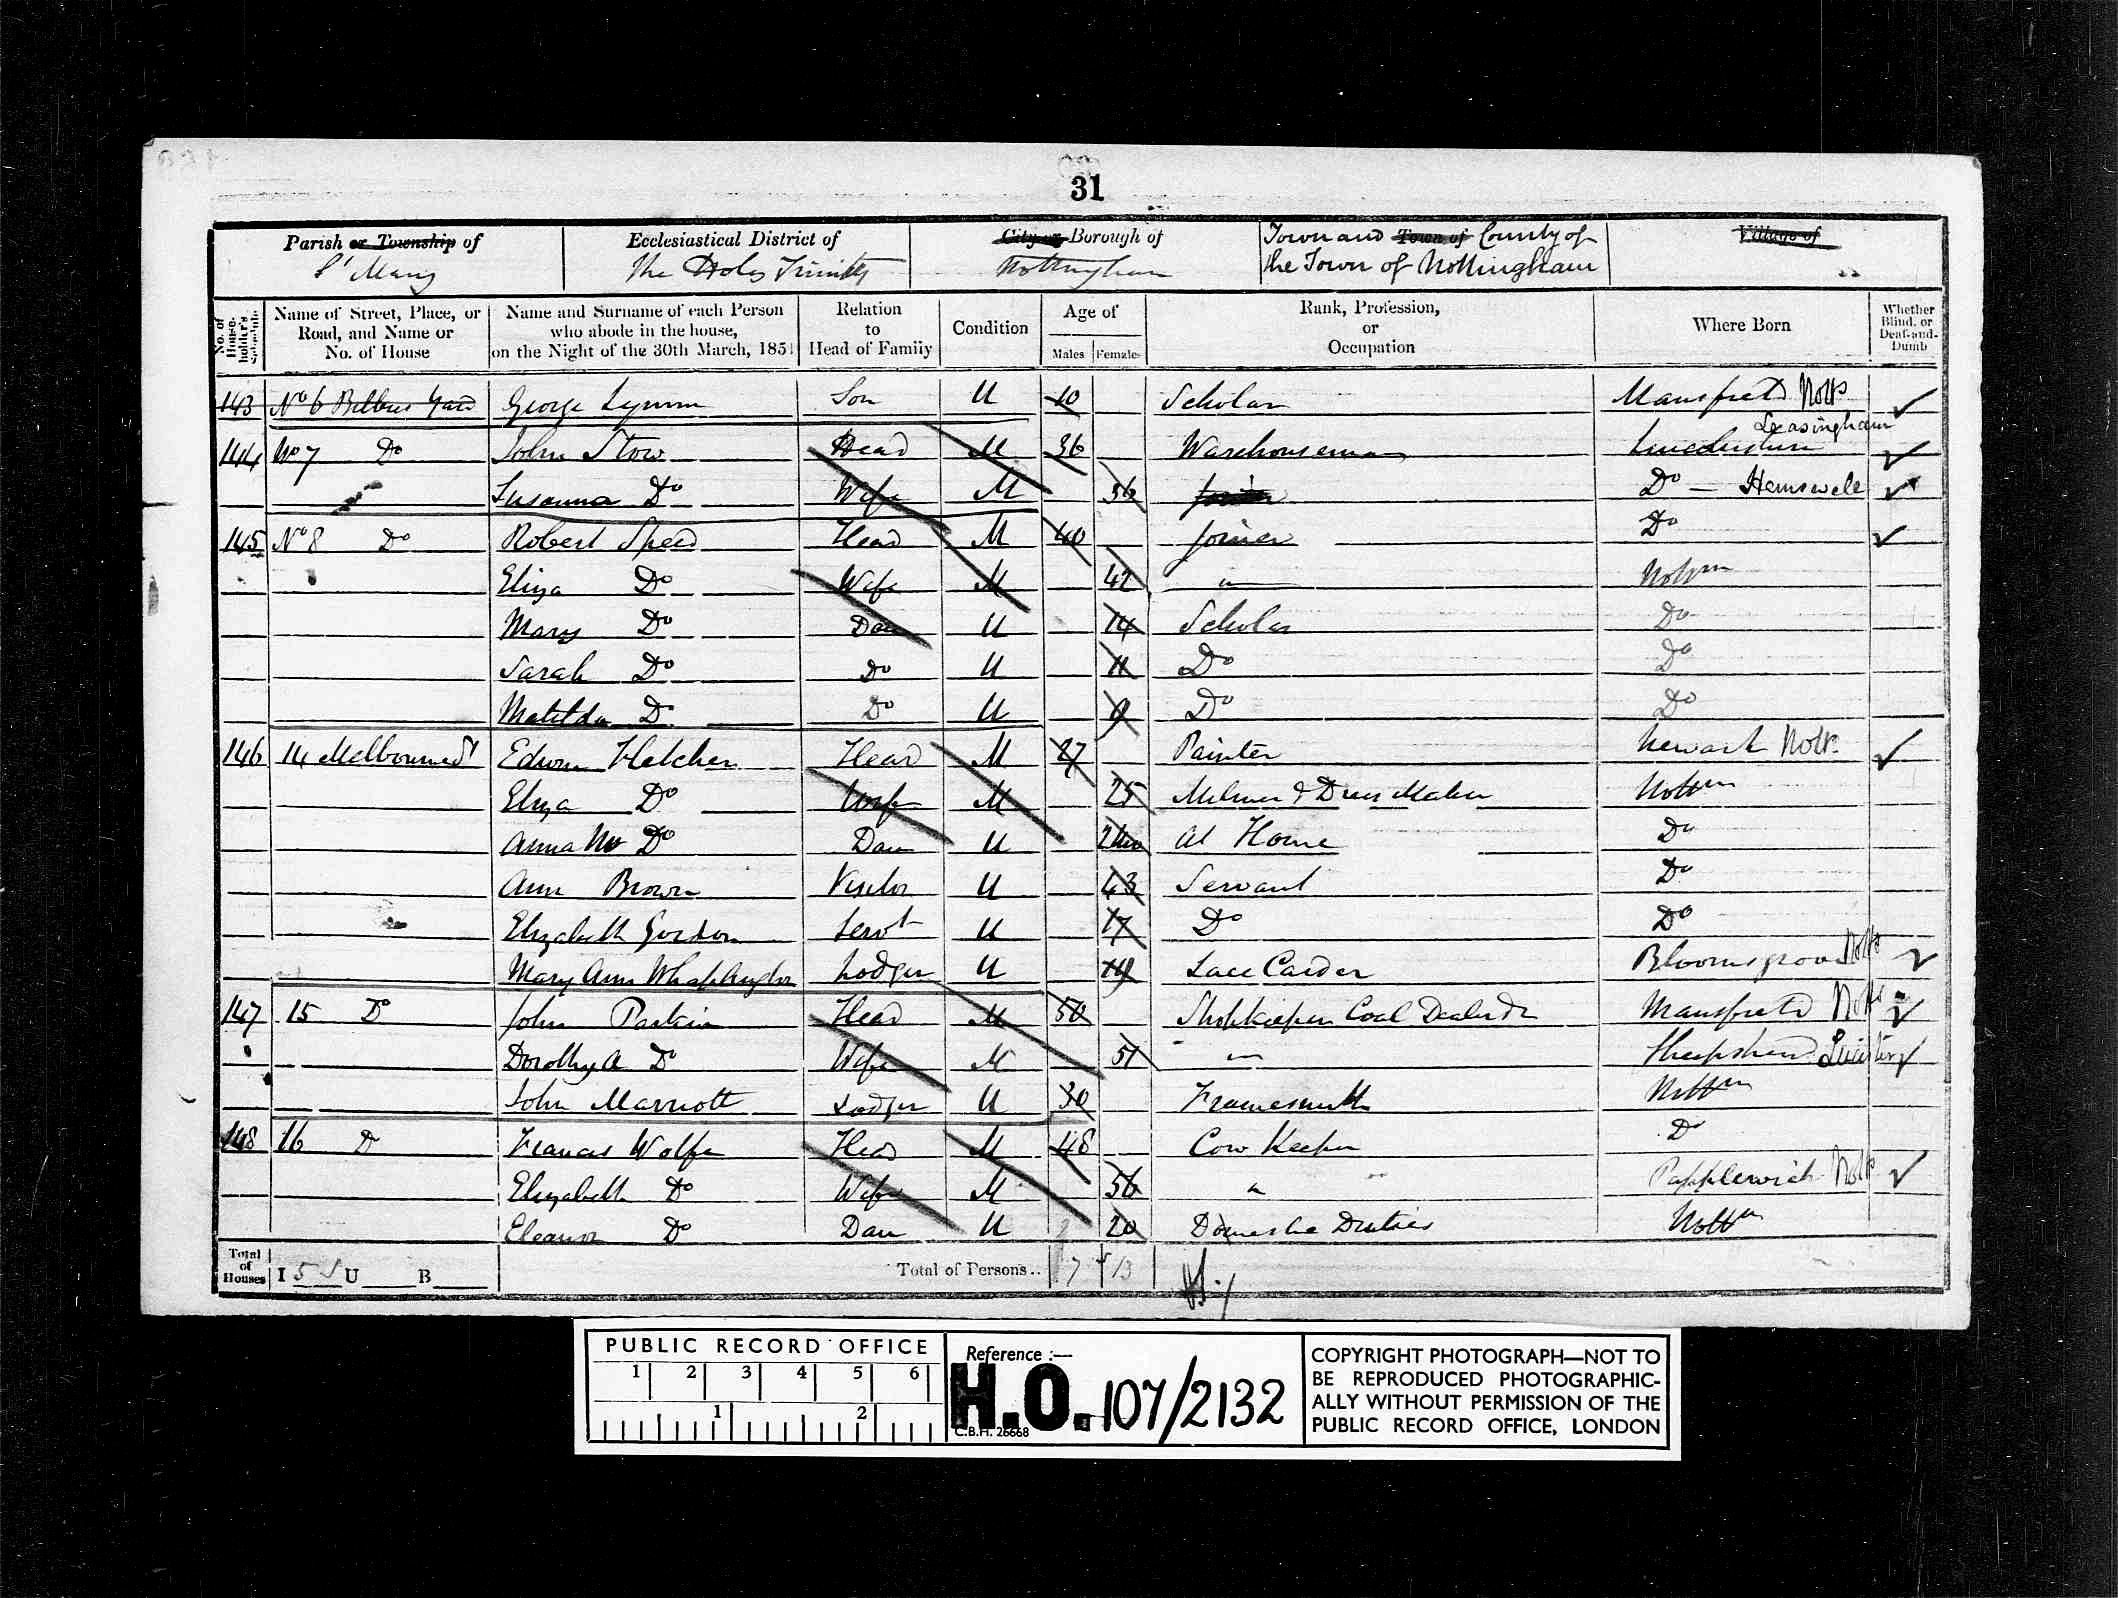 31
Parish or Township of
St Mary
Ecclesiastical District of
The Holy Trinity
City or Borough of
Nottingham
Town and Town of County of
the Town of Nottingham
Village of
No. of House-holder's Schedule
Name of Street, Place, or Road, and Name or No. of House
Name and Surname of each Person who abode in the house, on the Night of the 30th March, 1851
Relation to Head of Family
Condition
Age of
Males Females
Rank, Profession, or Occupation
Where Born
Whether Blind, or Deaf-and-Dumb
143 No 6 Yard George Lynam Son U 10 Scholar Mansfield Notts
144 No 7 Do John Stow Head M 36 Warehouseman Lincolnshire Leasingham
Susanna Do Wife M 56 Do — Hemswell
145 No 8 Do Robert Speed Head M 40 Joiner Do
Eliza Do Wife M 42 Nottm
Mary Do Dau U 14 Scholar Do
Sarah Do Do U 11 Do Do
Matilda Do Do U 9 Do Do
146 14 Melbourne St Edwin Fletcher Head M 27 Painter Newark Notts
Eliza Do Wife M 25 Milliner & Dress Maker Nottm
Anna M Do Dau U 2 mo At Home Do
Ann Brown Visitor U 43 Servant Do
Elizabeth Gordon Servt U 17 Do Do
Mary Ann Lodger U 19 Lace Carder Bloomsgrove Notts
147 15 Do John Parkin Head M 50 Shopkeeper Coal Dealer Mansfield Notts
Dorothy A Do Wife M 51 Sheepshead Leicester
John Marriott Lodger U 30 Framesmith Nottm
148 16 Do Francis Wolfe Head M 48 Cow Keeper Do
Elizabeth Do Wife M 56 Papplewick Notts
Eleanor Do Dau U 20 Domestic Duties Nottm
Total of Houses I 5 U B Total of Persons.. 7 13
PUBLIC RECORD OFFICE
1 2 3 4 5 6
1 2
Reference :—
H.O. 107/2132
C.B.H. 26668
COPYRIGHT PHOTOGRAPH—NOT TO
BE REPRODUCED PHOTOGRAPHIC-
ALLY WITHOUT PERMISSION OF THE
PUBLIC RECORD OFFICE, LONDON